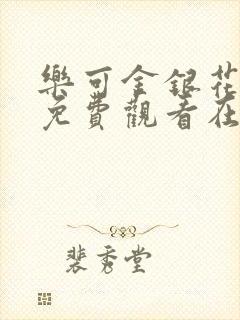 樂可金銀花
免費觀看在
裴秀堂